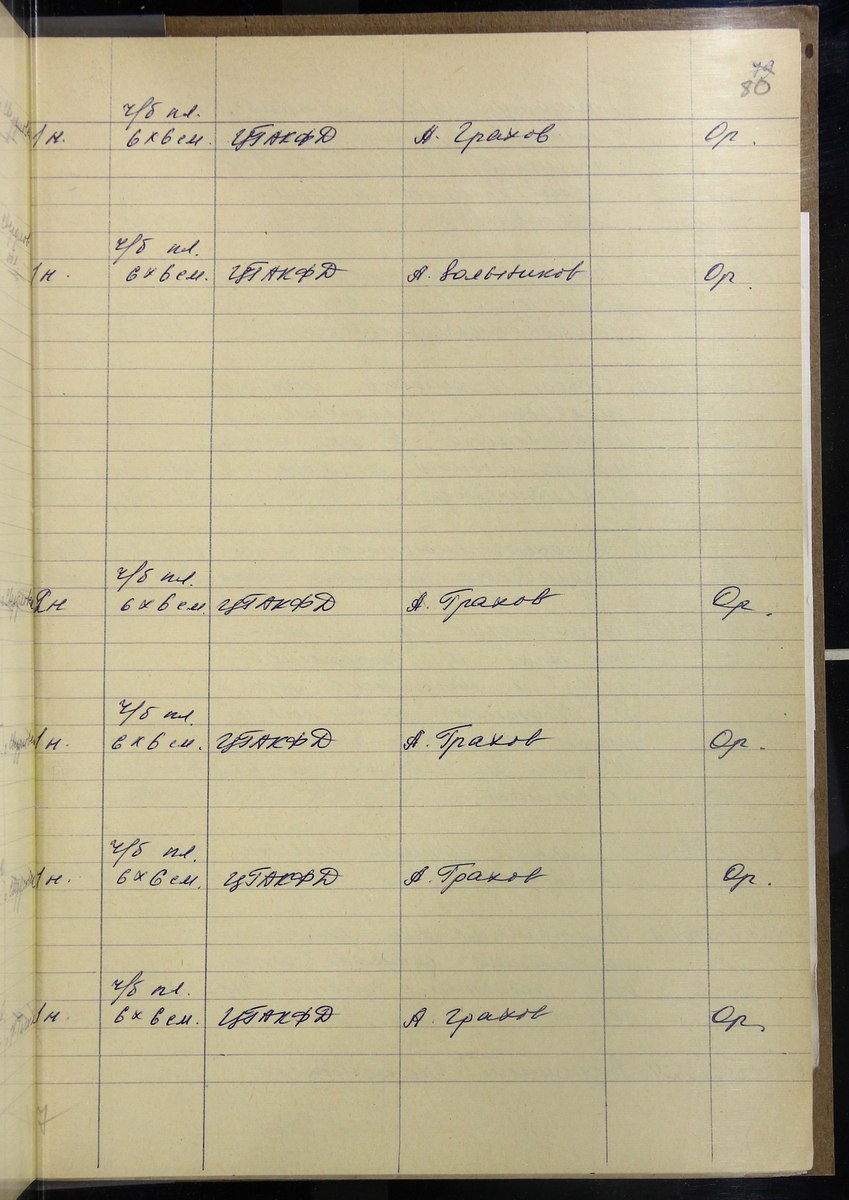 79
80
ч/б пл.
1 н. 6 х 6 см. ЦГАКФД А. Грахов Ор.
ч/б пл.
1 н. 6 х 6 см. ЦГАКФД А. Вольников Ор.
ч/б пл.
2 н 6 х 6 см ЦГАКФД А. Грахов Ор.
ч/б пл.
1 н. 6 х 6 см. ЦГАКФД А. Грахов Ор.
ч/б пл.
1 н. 6 х 6 см. ЦГАКФД А. Грахов Ор.
ч/б пл.
1 н. 6 х 6 см. ЦГАКФД А. Грахов Ор.
7